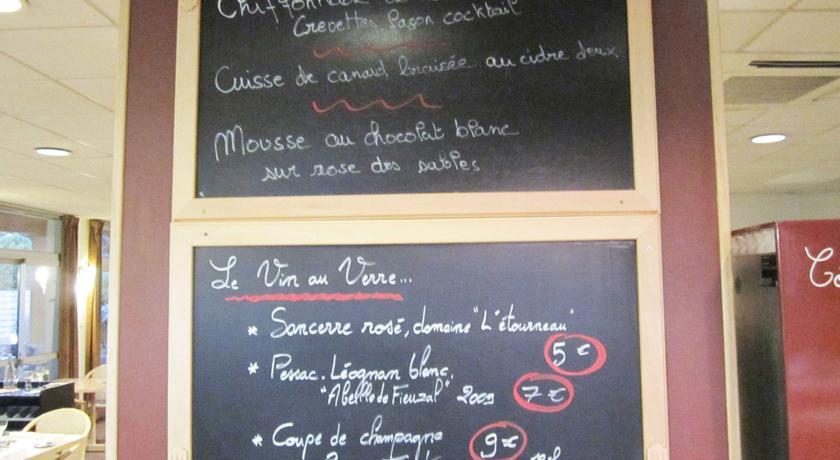 Crevettes façon cocktail
Cuisse de canard braisée au cidre doux
Mousse au chocolat blanc
sur rose des sables
Le Vin au Verre...
* Sancerre rosé, domaine "L'étourneau"
5 €
* Pessac. Léognan blanc,
"Abeille de Fieuzal" 2009 7 €
* Coupe de champagne 9 €